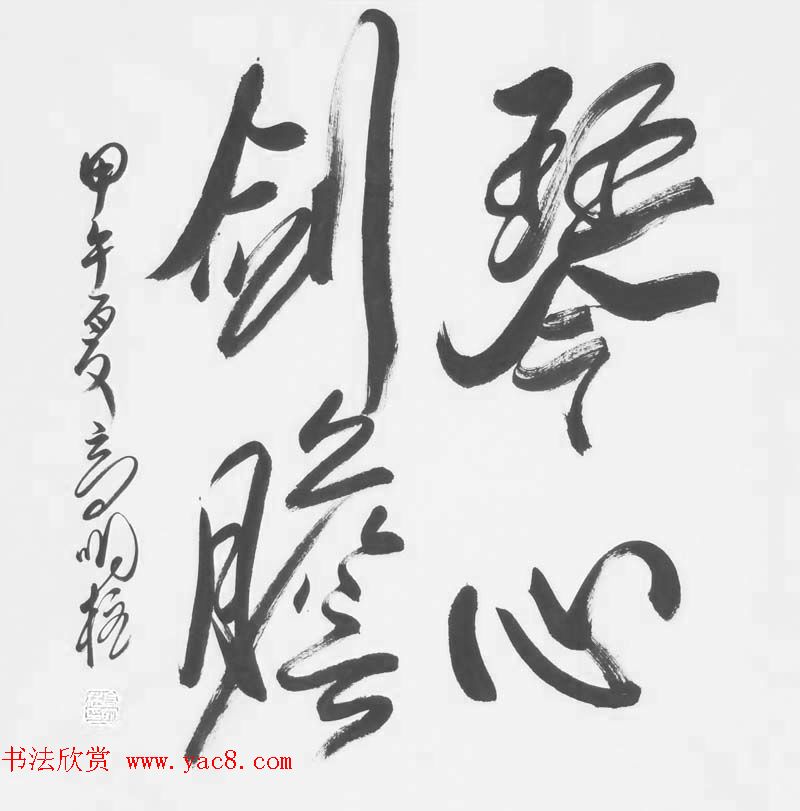 琴心
剑膽
甲午夏高明柱
书法欣赏 www.yac8.com